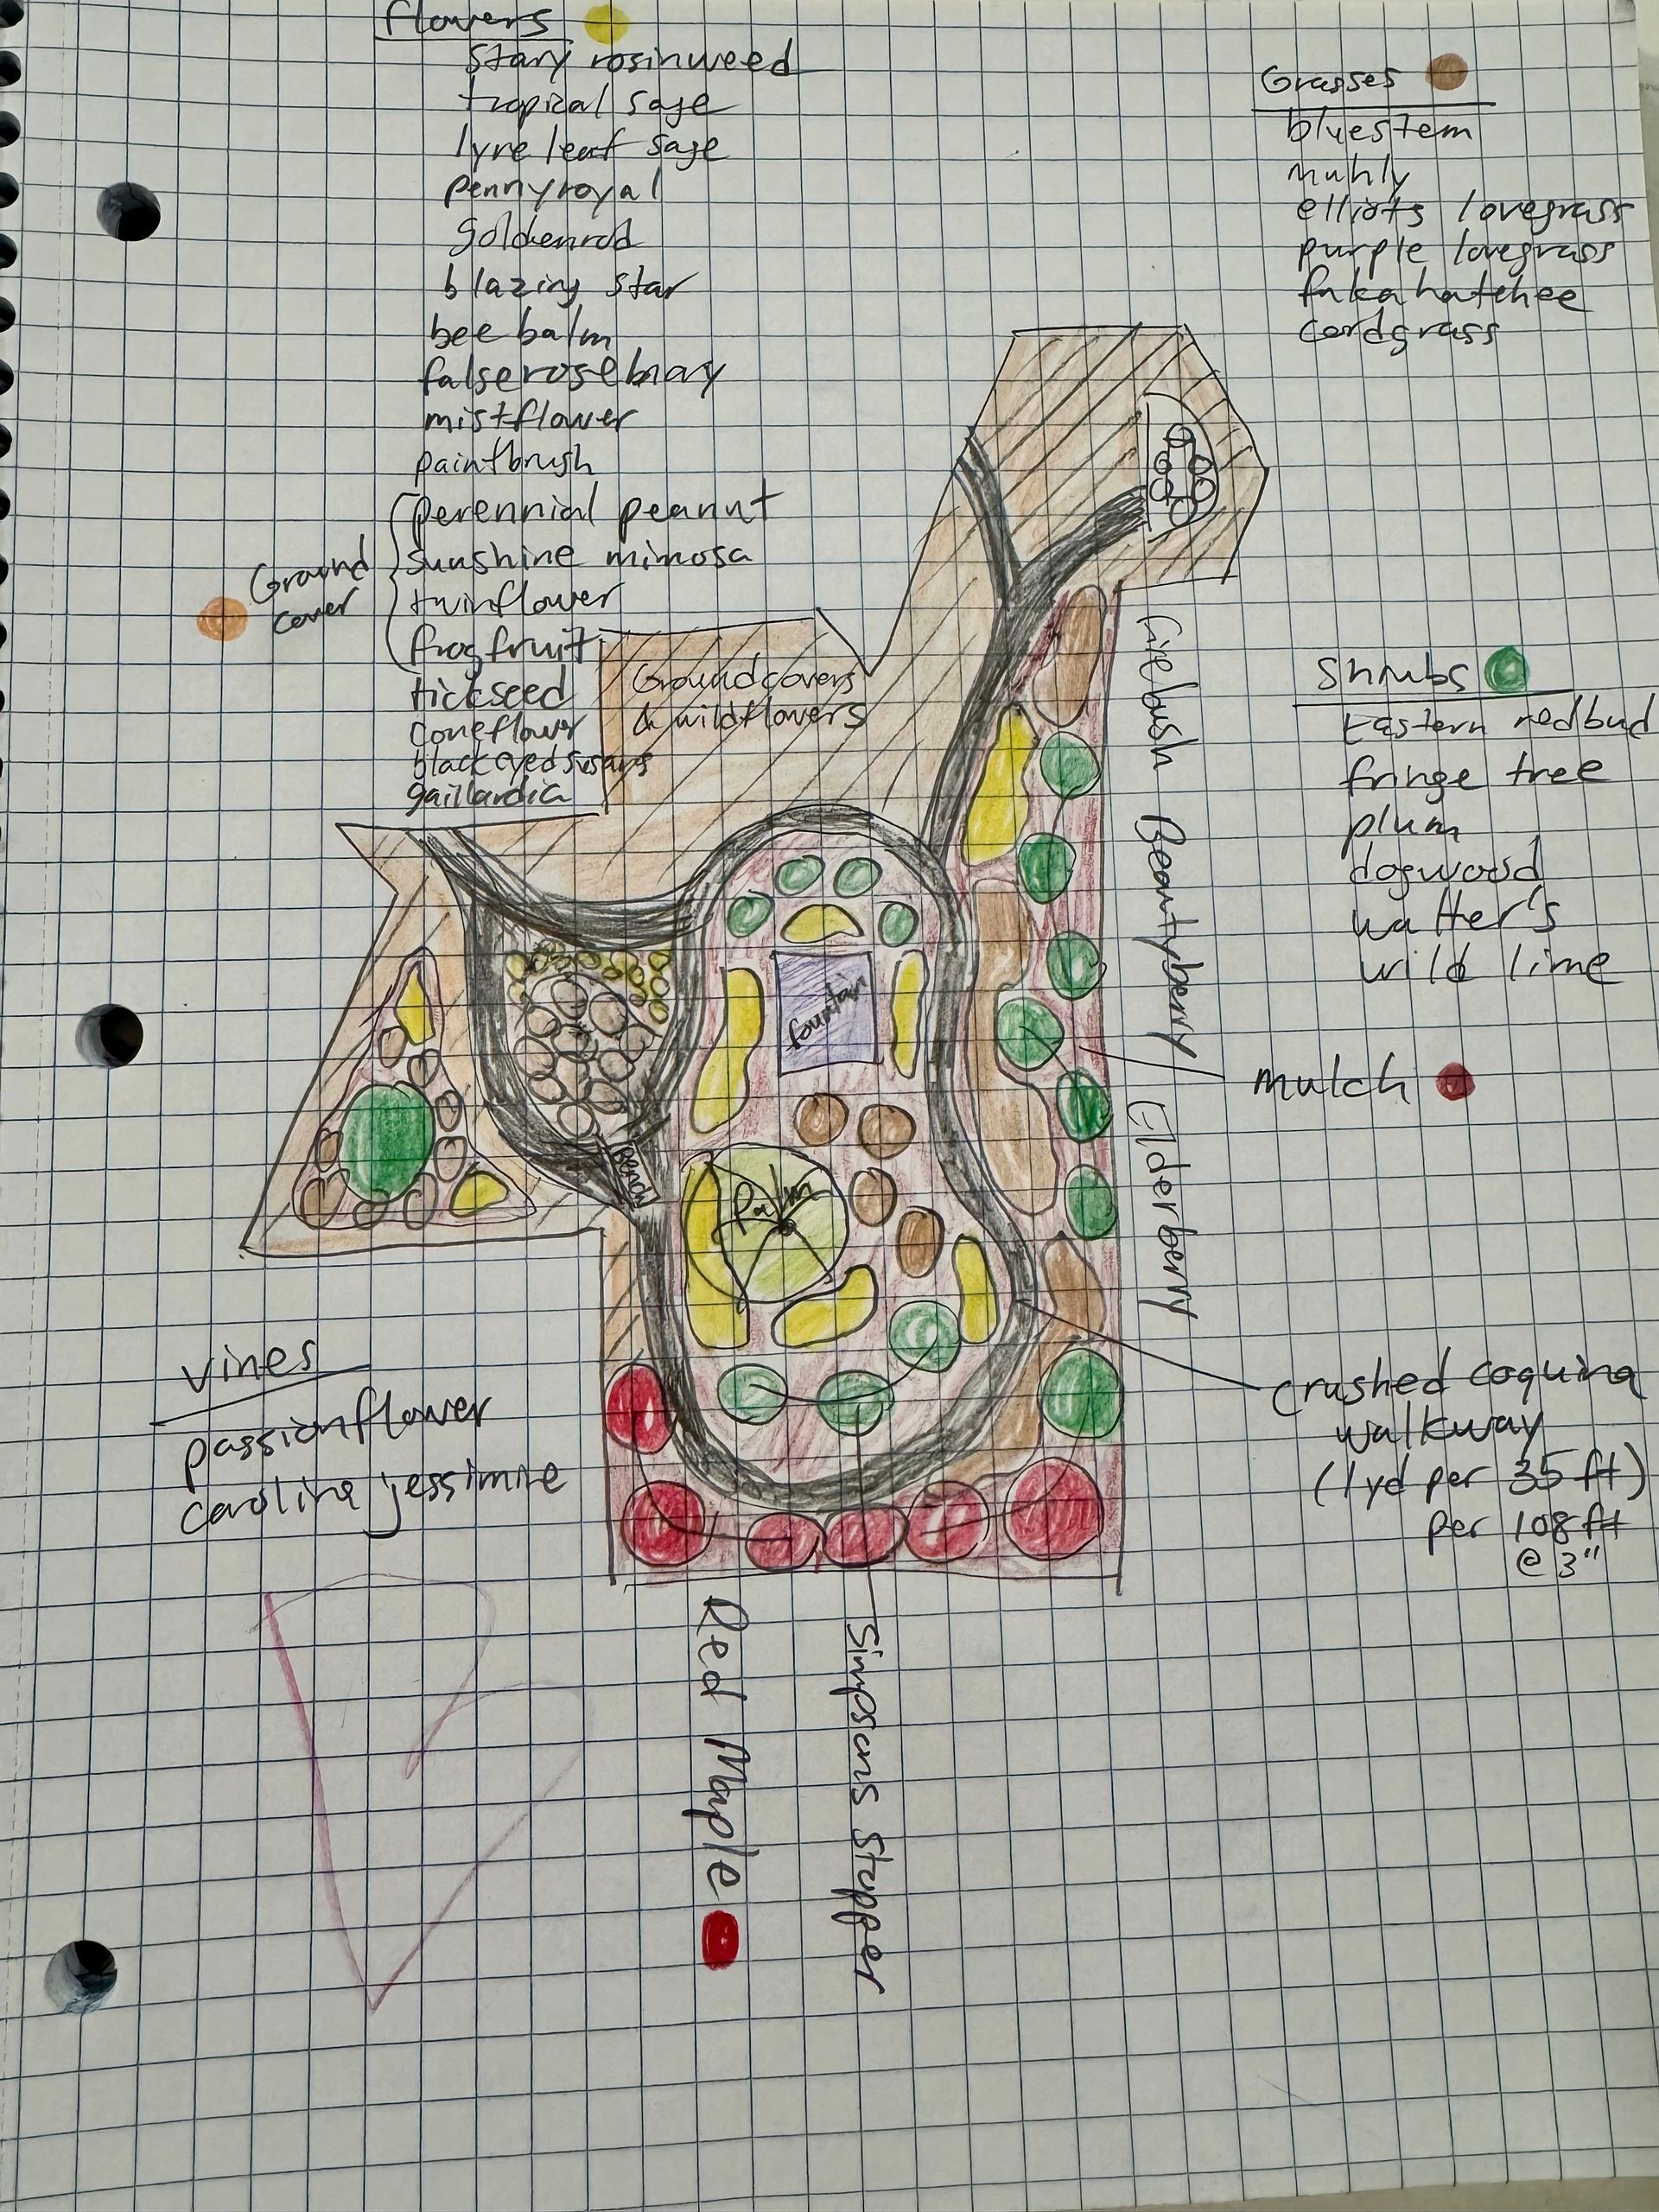 flowers
stary rosinweed
tropical sage
lyre leaf sage
pennyroyal
goldenrod
blazing star
bee balm
false rosemary
mistflower
paintbrush
perennial peanut
sunshine mimosa
twinflower
frogfruit
tickseed
coneflower
blackeyed susans
gaillardia
Ground
cover
Grasses
bluestem
muhly
elliots lovegrass
purple lovegrass
fakahatchee
cordgrass
Groundcovers
& wildflowers
Shrubs
Eastern redbud
fringe tree
plum
dogwood
walter's
wild lime
firebush Beautyberry Elderberry
mulch
fountain
Bench
Palm
vines
passionflower
carolina jessimine
crushed coquina
walkway
(1yd per 35 ft)
per 108 ft
@ 3"
Red Maple
Simpsons Stopper